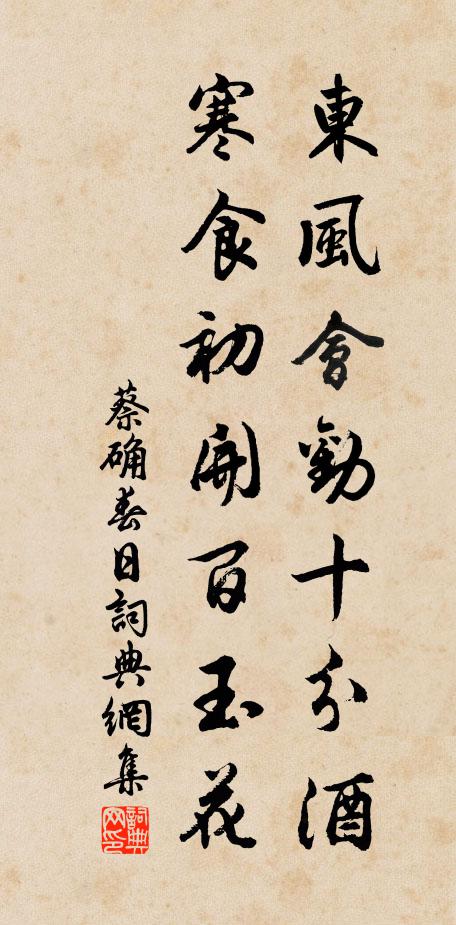 東風會勸十分酒
寒食初開百玉花
蔡确春日詞典網集
詞典網印